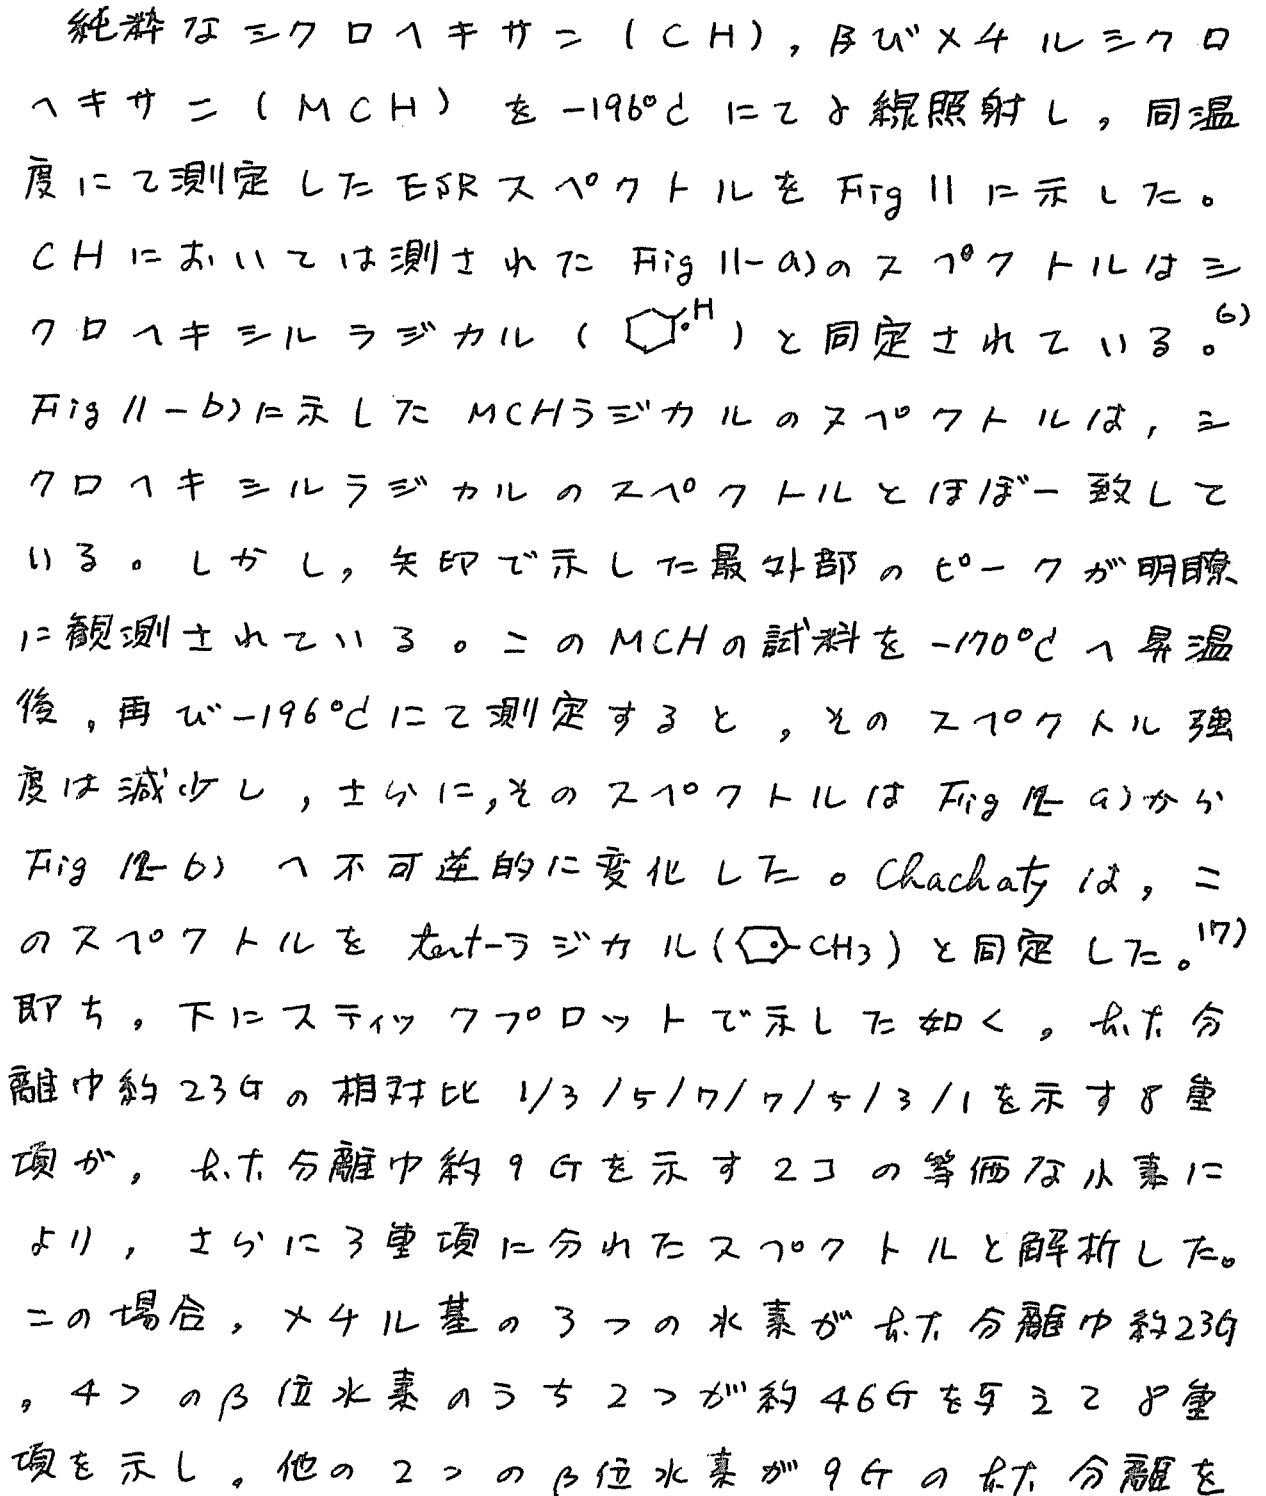 純粋なシクロヘキサン(CH),及びメチルシクロ
ヘキサン(MCH)を-196°Cにてγ線照射し,同温
度にて測定したESRスペクトルをFig 11に示した。
CHにおいては測されたFig 11-a)のスペクトルはシ
クロヘキシルラジカル( H )と同定されている。6)
Fig 11-b)に示したMCHラジカルのスペクトルは,シ
クロヘキシルラジカルのスペクトルとほぼ一致して
いる。しかし,矢印で示した最外部のピークが明瞭
に観測されている。このMCHの試料を-170°Cへ昇温
後,再び-196°Cにて測定すると,そのスペクトル強
度は減少し,さらに,そのスペクトルはFig 12-a)から
Fig 12-b)へ不可逆的に変化した。Chachatyは,こ
のスペクトルをtert-ラジカル( CH3)と同定した。17)
即ち,下にスティックプロットで示した如く,h.f.分
離巾約23Gの相対比1/3/5/7/7/5/3/1を示す8重
項が,h.f.分離巾約9Gを示す2コの等価な水素に
より,さらに3重項に分れたスペクトルと解析した。
この場合,メチル基の3つの水素がh.f.分離巾約23G
,4つのβ位水素のうち2つが約46Gを与えて8重
項を示し,他の2つのβ位水素が9Gのh.f.分離を